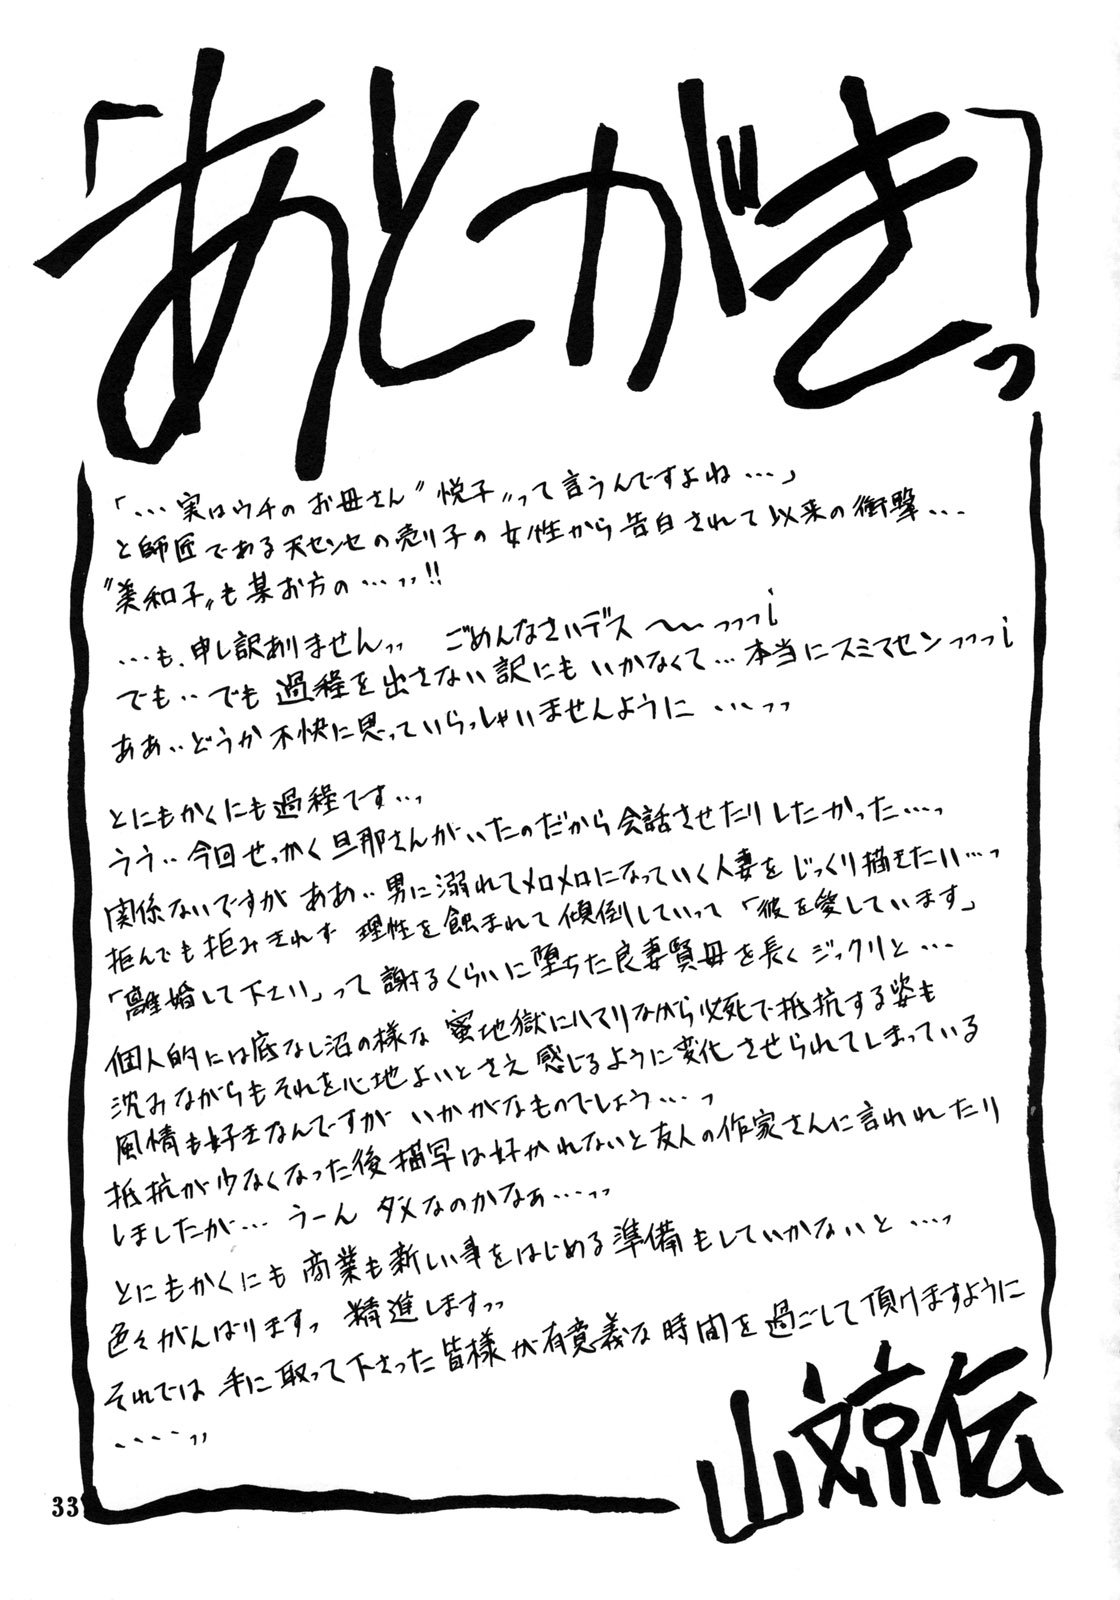 「あとがきっ」
「…実はウチのお母さん〝悦子〟って言うんですよね…」
と師匠である天センセの売り子の女性から告白されて以来の衝撃…
〝美和子〟も某お方の…ッッ!!
…も、申し訳ありませんッッ ごめんなさいデス〜〜ッッッ¡
でも‥でも過程を出さない訳にもいかなくて…本当にスミマセンッッッ¡
ああ‥どうか不快に思っていらっしゃいませんように…ッッ
とにもかくにも過程です…ッ
うう‥今回せっかく旦那さんがいたのだから会話させたりしたかった…ッ
関係ないですが ああ‥男に溺れてメロメロになっていく人妻をじっくり描きたい…ッ
拒んでも拒みきれず 理性を蝕まれて傾倒していって「彼を愛しています」
「離婚して下さい」って謝るくらいに堕ちた良妻賢母を長くジックリと…
個人的には底なし沼の様な蜜地獄にハマりながら必死で抵抗する姿も
沈みながらもそれを心地よいとさえ感じるように変化させられてしまっている
風情も好きなんですが いかがなものでしょう…ッ
抵抗が少なくなった後描写は好かれないと友人の作家さんに言われたり
しましたが… うーん ダメなのかなぁ…ッッ
とにもかくにも 商業も新しい事をはじめる準備もしていかないと…ッ
色々がんばりますッ 精進しますッッ
それでは 手に取って下さった皆様が有意義な時間を過ごして頂けますように
‥‥ッッ
山文京伝
33